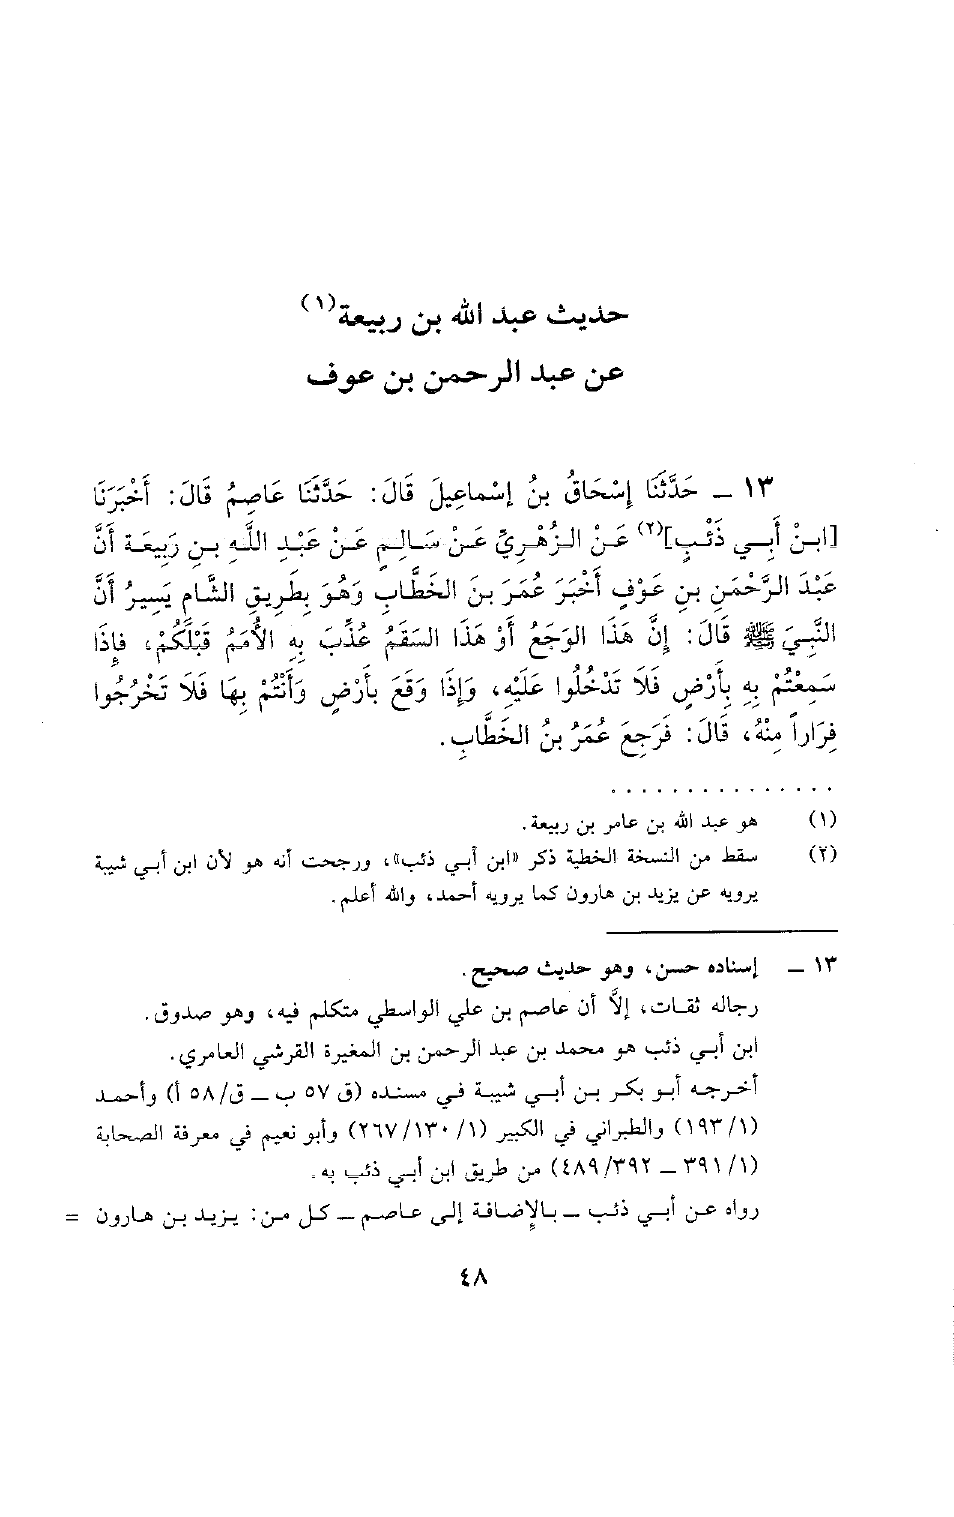 حديث عبد الله بن ربيعة(١)
عن عبد الرحمن بن عوف
١٣ ـ حَدَّثَنَا إِسْحَاقُ بنُ إِسْماعِيلَ قَالَ: حَدَّثَنَا عَاصِمُ قَالَ: أَخْبَرَنَا
[ابنْ أَبِي ذَئْبٍ](٢) عَنْ الزُهْرِيِّ عَنْ سَالِمٍ عَنْ عَبْدِ اللَّهِ بنِ رَبِيعَة أَنَّ
عَبْدَ الرَّحْمَنِ بنِ عَوْفٍ أَخْبَرَ عُمَرَ بنَ الخَطَّابِ وَهُوَ بِطَرِيقِ الشَّامِ يَسِيرُ أَنَّ
النَّبِيَ ﷺ قَالَ: إِنَّ هَذَا الوَجَعُ أَوْ هَذَا السَقَمُ عُذِّبَ بِهِ الأُمَمُ قَبْلَكُمْ، فَإِذَا
سَمِعْتُمْ بِهِ بِأَرْضٍ فَلَا تَدْخُلُوا عَلَيْهِ، وَإِذَا وَقَعَ بأَرْضٍ وَأَنْتُمْ بِهَا فَلَا تَخْرُجُوا
فِرَاراً مِنْهُ، قَالَ: فَرَجِعَ عُمَرُ بنُ الخَطَّابِ.
. . . . . . . . . . . . . . .
(١) هو عبد الله بن عامر بن ربيعة.
(٢) سقط من النسخة الخطية ذكر «ابن أبي ذئب»، ورجحت أنه هو لأن ابن أبي شيبة
يرويه عن يزيد بن هارون كما يرويه أحمد، والله أعلم.
١٣ ـ إسناده حسن، وهو حديث صحيح.
رجاله ثقات، إلاَّ أن عاصم بن علي الواسطي متكلم فيه، وهو صدوق.
ابن أبي ذئب هو محمد بن عبد الرحمن بن المغيرة القرشي العامري.
أخرجه أبو بكر بن أبي شيبة في مسنده (ق ٥٧ ب ـ ق/٥٨ أ) وأحمد
(١/١٩٣) والطبراني في الكبير (١/١٣٠/٢٦٧) وأبو نعيم في معرفة الصحابة
(١/٣٩١ ـ ٣٩٢/٤٨٩) من طريق ابن أبي ذئب به.
رواه عن أبي ذئب ـ بالإضافة إلى عاصم ـ كل من: يزيد بن هارون =
٤٨